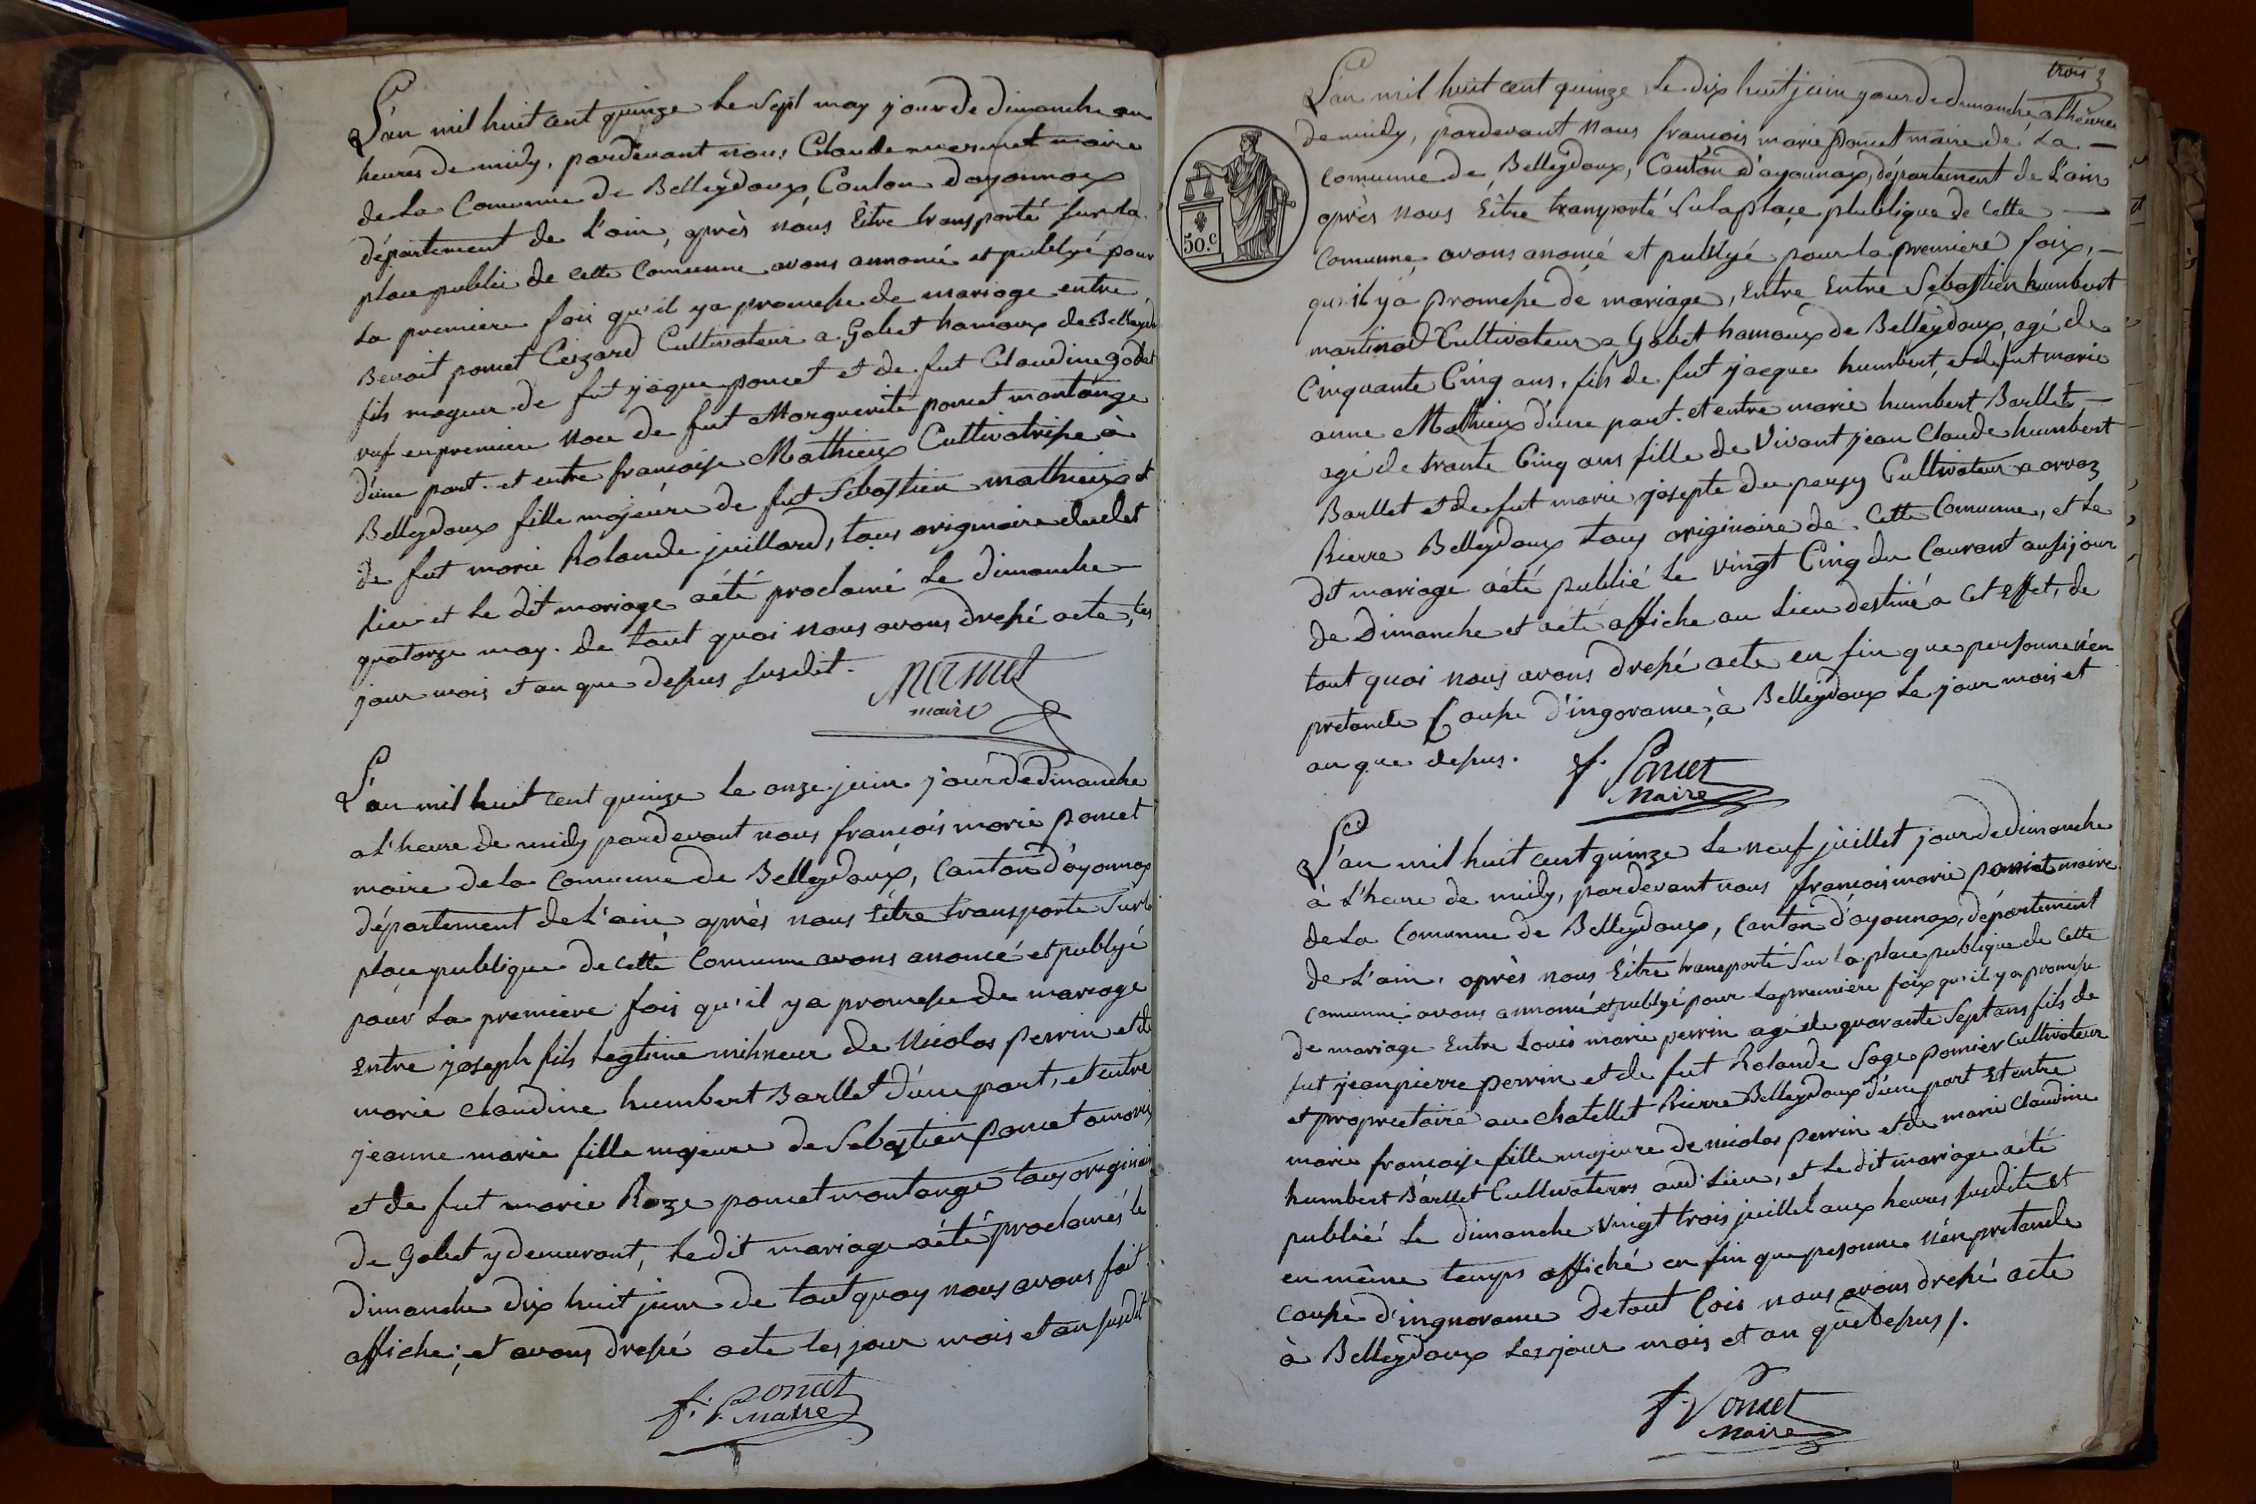 L'an mil huit cent quinze le sept may jour de dimanche au
heures de midy, pardevant nous Claude mermet maire
de La Comunne de Belleydoux Canton d'ayonnax
département de L'ain, après nous Eitre transporté sur la
place public de cette Comunne avons annoncé et publyé pour
La premiere fois qu'il ya promesse de mariage entre
Benoit poncet Ceizard Cultivateur a Gobet hamaux de Belleydx
fils mageur de fut jaque poncet et de fut Claudine godet
vuf enpremiere noce de fut Marguerite poncet montange
d'une part. et entre françoise Mathieux Cultivatrisse à
Belleydoux fille majeure de fut Sebastien mathieux et
de fut marie Rolande juillard, tous originaire dudet
Lieu et Le dit mariage aété proclamé Le dimanche
quatorze may. de tout quoi nous avons dressé acte, Les
jour mois et an que dessus susdit.
Mermet
maire
L'an mil huit cent quinze le onze juin jour de dimanche
a L'heure de midy pardevant nous francois marie poncet
maire de la Comunne de Belleydoux, Canton d'ayonnax
département de L'ain après nous Eitre transporte sur la
place publique de cette Comunne avons anoncé et publyé
pour La premiere fois qu'il ya promesse de mariage
Entre joseph fils Legtime mihneur de Nicolas perrin et de
marie claudine humbert Barllet d'une part, et entre
jeanne marie fille majeure de Sebastien poncet
et de fut marie Roze poncet montange tous originair
de Gobet y demeurant, Ledit mariage aété proclamés le
dimanche dix huit juin de tout quoy nous avons fait
affiche; et avons dressé acte les jour mois et an susdit
f. Poncet
maire
trois 3
L'an mil huit cent quinze, Le dix huit juin jour de dimanche alheure
de midy, pardevant Nous francois marie poncet maire de La
comunne de Belleydoux, Canton d'ayounax, département de L'ain
après nous Eitre transporté sulaplaçe plublique de cette
50.c
Comunne avons anoncé et publyé pour la premiere foix,
qu'il y'a promesse de mariage, Entre Entre Sebastien humbert
martinod Cultivateur a Gobet hamaux de Belleydoux, agé de
Cinquante Cinq ans, fils de fut jacque humbert, et de fut marie
anne Mathieux d'une part. et entre marie humbert Barllet
agé de trante Cinq ans fille de Vivant jean Claude humbert
Barllet et de fut marie josepte du parzy Cultivateur a orvaz
Rierre Belleydoux tous originaire de Cette Comunne, et Le
dit mariage aété publié Le vingt Cinq du Courant ausijour
de Dimanche et aété affiche au Lieu destiné a Cet Effet, de
tout quoi nous avons dressé acte en fin que personne n'en
pretande Causse d'ingorance, à Belleydoux Le jour mois et
an que dessus.
f. Poncet
Maire
L'an mil huit cent quinze Le neuf juillet jour de dimanche
à L'heure de midy, pardevant nous francois marie poncet maire
de La Comunne de Belleydoux, Canton d'ayounax, département
de L'ain, après nous Eitre transporté sur la place publique de cette
comunne avons annoncé et publyé pour La premiere foix qu'il ya promesse
de mariage Entre Louis marie perrin agé de quarante Sept ans fils de
fut jeanpierre perrin et de fut Rolande Sage pomier Cultivateur
et propreetaire au chatellet Rierre Belleydoux d'une part Et entre
marie françoise fille majeure de nicolas perrin et de marie claudine
humbert Barllet Cultivateurs aud. Lieu, et Le dit mariage aété
publiè Le dimanche vingt trois juillet aux heures susdite et
en même temps affiché en fin que pesonne n'en pretande
causse d'ingnorance de tout Cois nous avons dressé acte
à Belleydoux Les jour mois et an que Dessus /.
f. Poncet
Maire